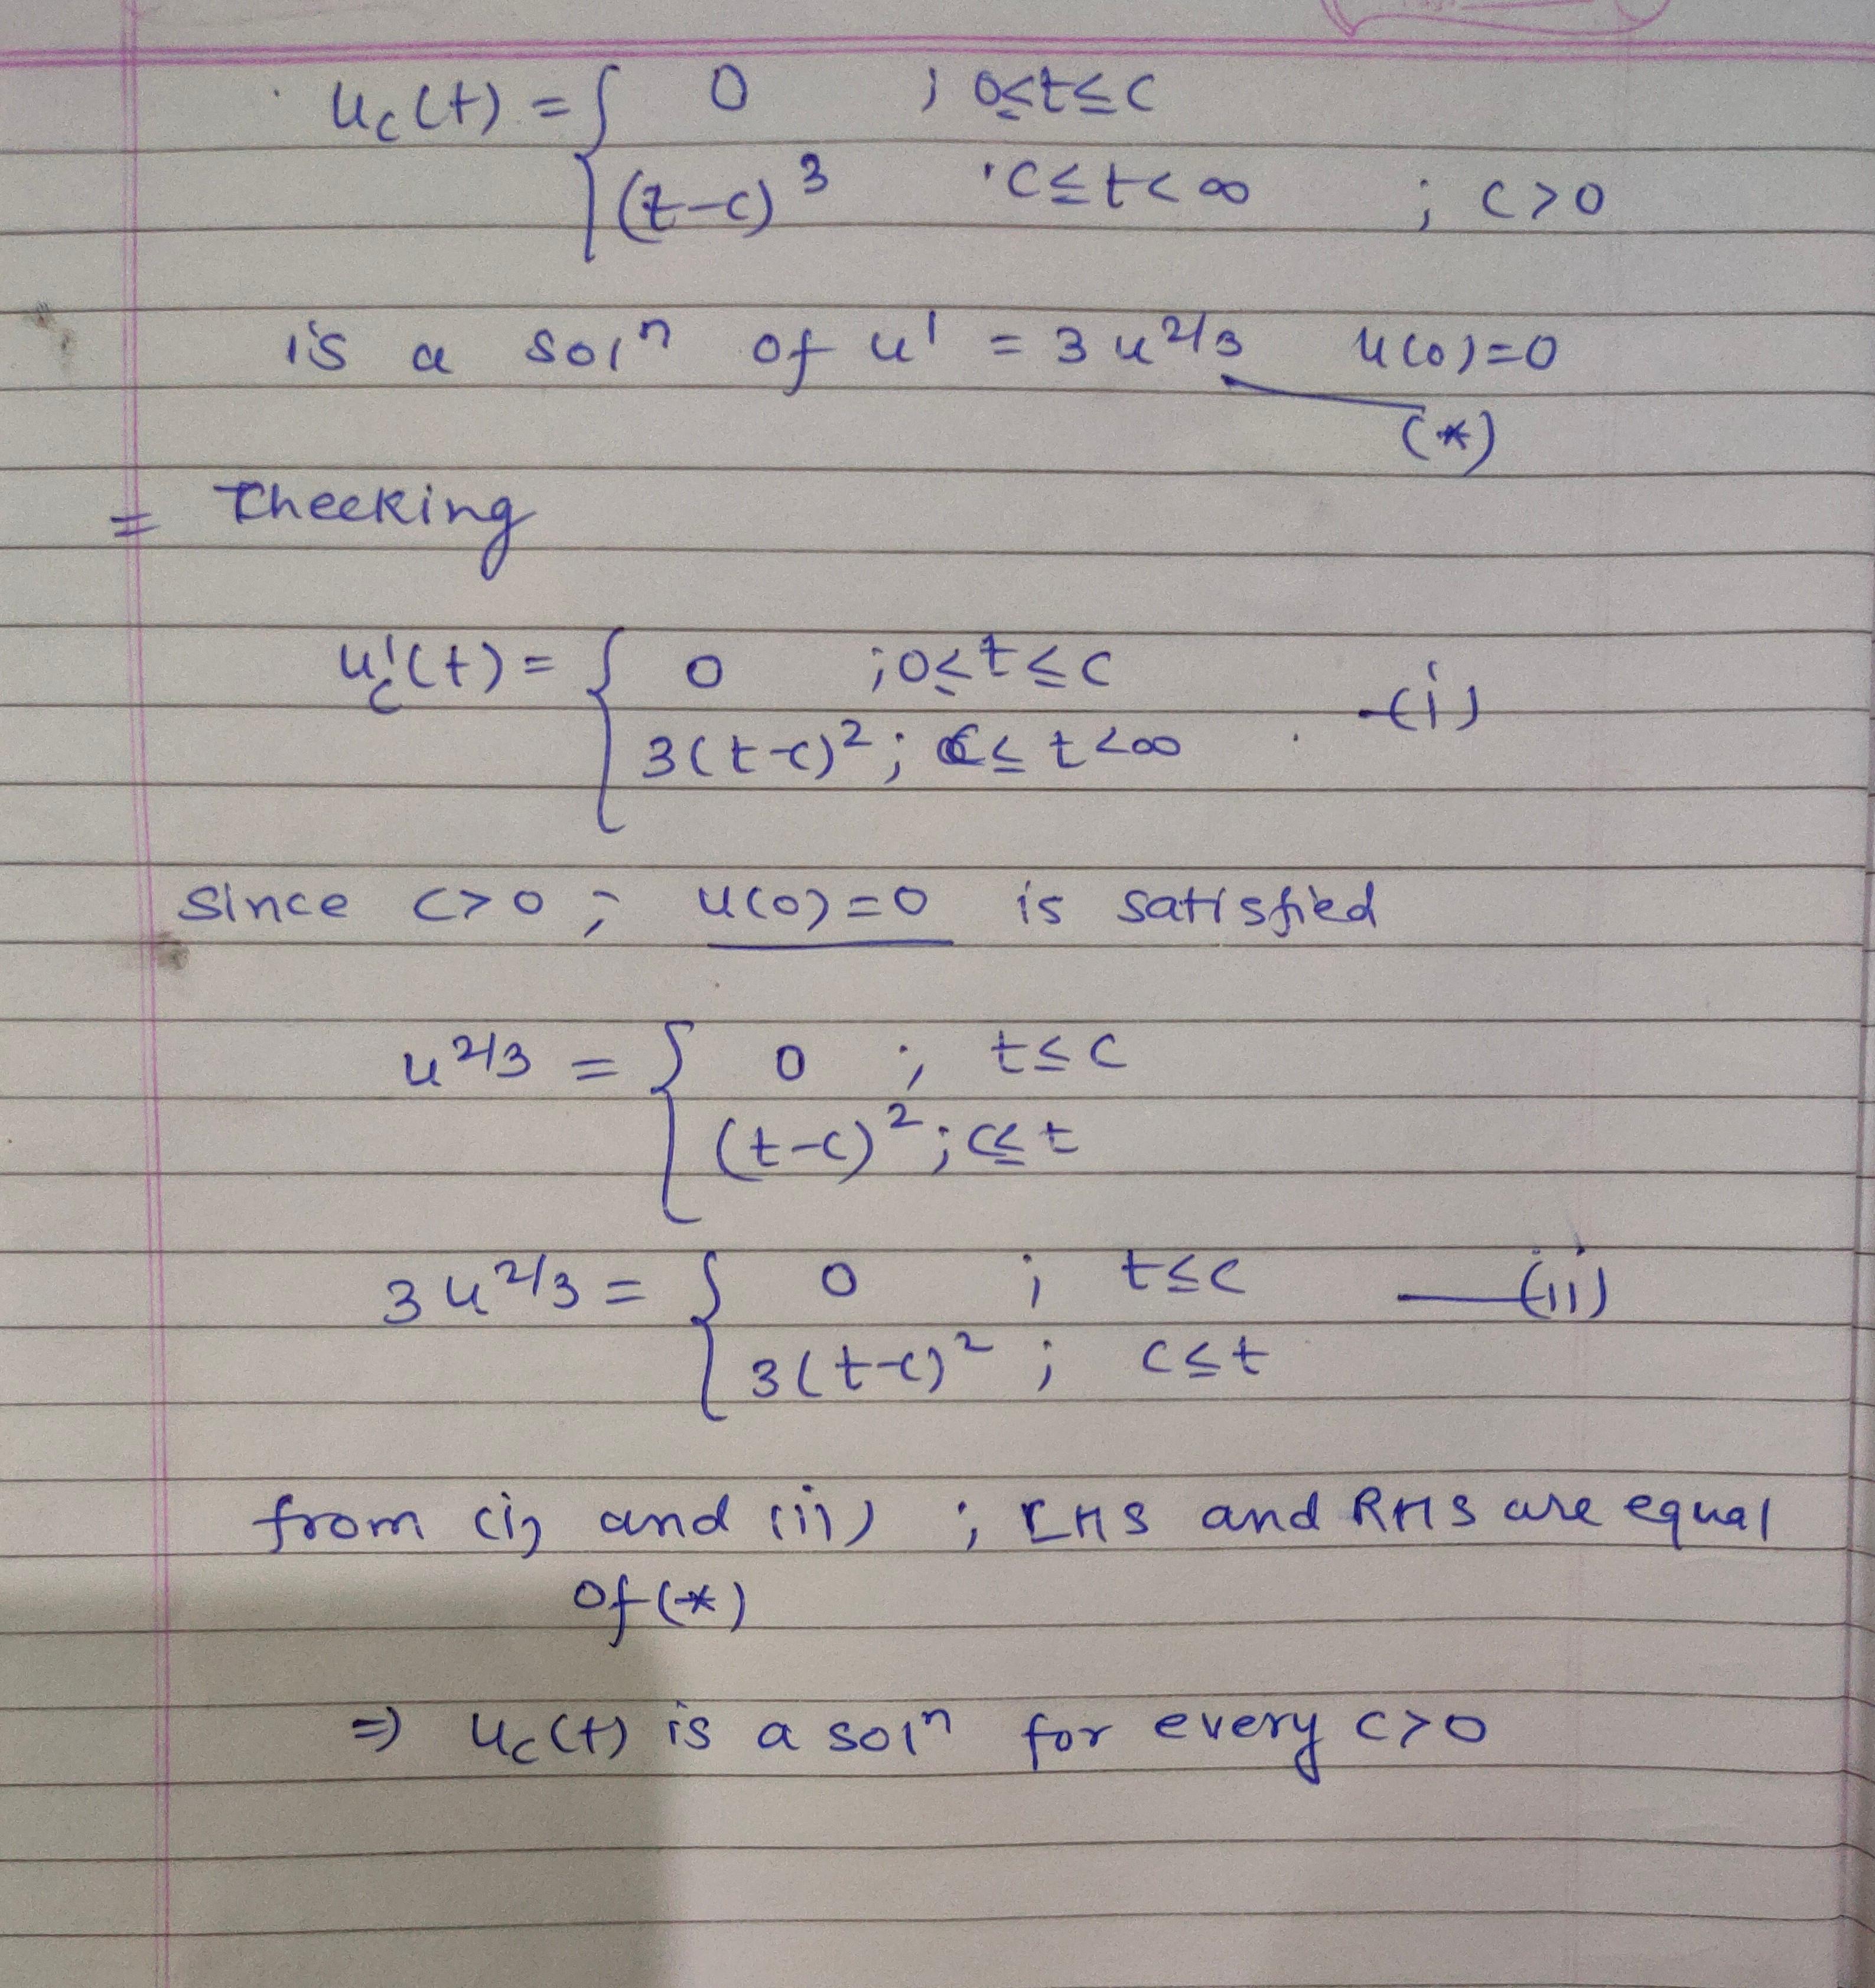 u_c(t) = { 0 ; 0≤t≤c
(t-c)^3 c≤t<∞ ; c>0
is a sol^n of u' = 3u^2/3 u(0)=0
(*)
= Checking
u_c'(t) = { 0 ; 0≤t≤c
3(t-c)^2 ; c≤t<∞ —(i)
Since c>0 ; u(0)=0 is satisfied
u^2/3 = { 0 ; t≤c
(t-c)^2 ; c≤t
3u^2/3 = { 0 ; t≤c —(ii)
3(t-c)^2 ; c≤t
from (i) and (ii) ; LHS and RHS are equal
of (*)
⇒ u_c(t) is a sol^n for every c>0